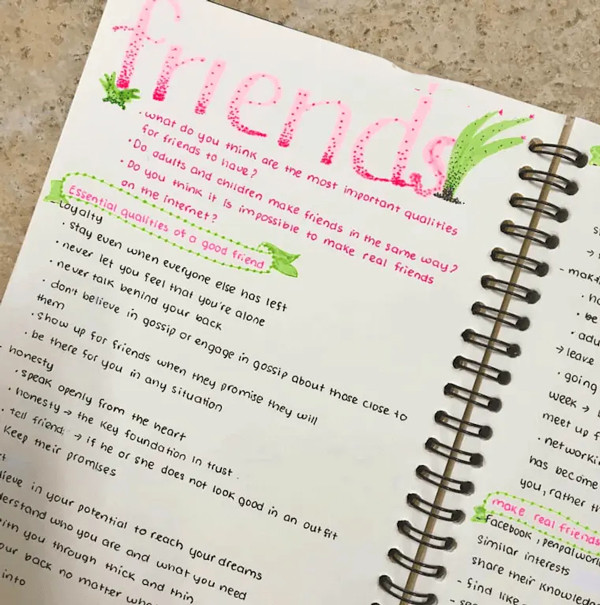 friends
· what do you think are the most important qualities
for friends to have?
· Do adults and children make friends in the same way?
· Do you think it is impossible to make real friends
on the internet?
Essential qualities of a good friend
Loyalty
· stay even when everyone else has left
· never let you feel that you're alone
· never talk behind your back
· don't believe in gossip or engage in gossip about those close to
them
· show up for friends when they promise they will
· be there for you in any situation
honesty
· speak openly from the heart
· honesty → the key foundation in trust
· tell friend → if he or she does not look good in an outfit
Keep their promises
in your potential to reach your dreams
who you are and what you need
you through thick and thin
back no matter
into
→ leave
· going
week →
meet up
has become
you, rather
make real friends
Facebook, penpal
similar interests
share their
- find like